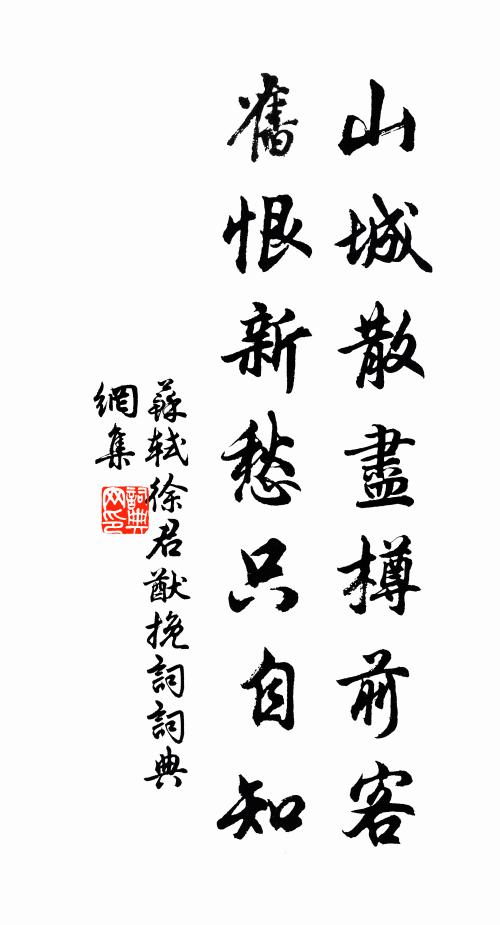 山城散盡樽前客
舊恨新愁只自知
蘇軾徐君猷挽詞詞典
網集
詞典
网印